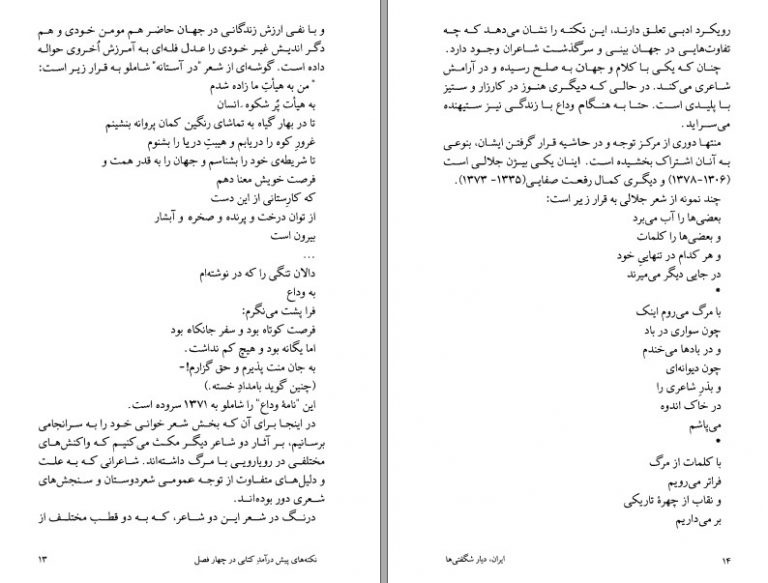 و با نفی ارزش زندگانی در جهان حاضر هم مومن خودی و هم
دگر اندیش غیر خودی را عدل فله‌ای به آمرزش اُخروی حواله
داده است. گوشه‌ای از شعر "در آستانه" شاملو به قرار زیر است:
"من به هیأتِ ما زاده شدم
به هیأت پُر شکوه .انسان
تا در بهار گیاه به تماشای رنگین کمان پروانه بنشینم
غرورِ کوه را دریابم و هیبتِ دریا را بشنوم
تا شریطه‌ی خود را بشناسم و جهان را به قدر همت و
فرصت خویش معنا دهم
که کارستانی از این دست
از توان درخت و پرنده و صخره و آبشار
بیرون است
...
دالان تنگی را که در نوشته‌ام
به وداع
فرا پشت می‌نگرم:
فرصت کوتاه بود و سفر جانکاه بود
اما یگانه بود و هیچ کم نداشت.
به جان منت پذیرم و حق گزارم!-
(چنین گوید بامدادِ خسته.)
این "نامهٔ وداع" را شاملو به ۱۳۷۱ سروده است.
در اینجا برای آن که بخش شعر خوانی خود را به سرانجامی
برسانیم، بر آثار دو شاعر دیگر مکث می‌کنیم که واکنش‌های
مختلفی در رویارویی با مرگ داشته‌اند. شاعرانی که به علت
و دلیل‌های متفاوت از توجه عمومی شعردوستان و سنجش‌های
شعری دور بوده‌انـد.
درنگ در شعر این دو شاعر، که به دو قطب مختلف از
نکته‌های پیش درآمدِ کتابی در چهار فصل ۱۳
رویکرد ادبی تعلق دارند، این نکته را نشان می‌دهد که چه
تفاوت‌هایی در جهان بینی و سرگذشت شاعران وجود دارد.
چنان که یکی با کلام و جهان به صلح رسیده و در آرامش
شاعری می‌کند. در حالی که دیگری هنوز در کارزار و ستیز
با پلیدی است. حتا به هنگام وداع با زندگی نیز ستیهنده
می‌سراید.
منتها دوری از مرکز توجه و در حاشیه قرار گرفتن ایشان، بنوعی
به آنان اشتراک بخشیده است. اینان یکی بیژن جلالی است
(۱۳۰۶-۱۳۷۸) و دیگری کمال رفعت صفایی(۱۳۳۵- ۱۳۷۳).
چند نمونه از شعر جلالی به قرار زیر است:
بعضی‌ها را آب می‌برد
و بعضی‌ها را کلمات
و هر کدام در تنهاییِ خود
در جایی دیگر می‌میرند
•
با مرگ می‌روم اینک
چون سواری در باد
و در بادها می‌خندم
چون دیوانه‌ای
و بذرِ شاعری را
در خاک اندوه
می‌پاشم
•
با کلمات از مرگ
فراتر می‌رویم
و نقاب از چهرهٔ تاریکی
بر می‌داریم
ایران، دیار شگفتی‌ها ۱۴